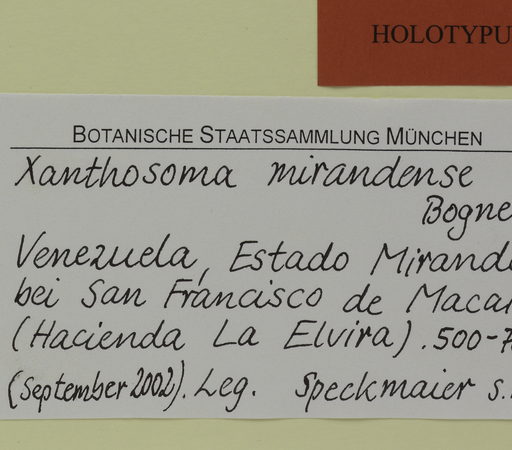 HOLOTYPU
BOTANISCHE STAATSSAMMLUNG MÜNCHEN
Xanthosoma mirandense
Bogne
Venezuela, Estado Mirand
bei San Francisco de Macar
(Hacienda La Elvira). 500-7
(September 2002). Leg. Speckmaier s.